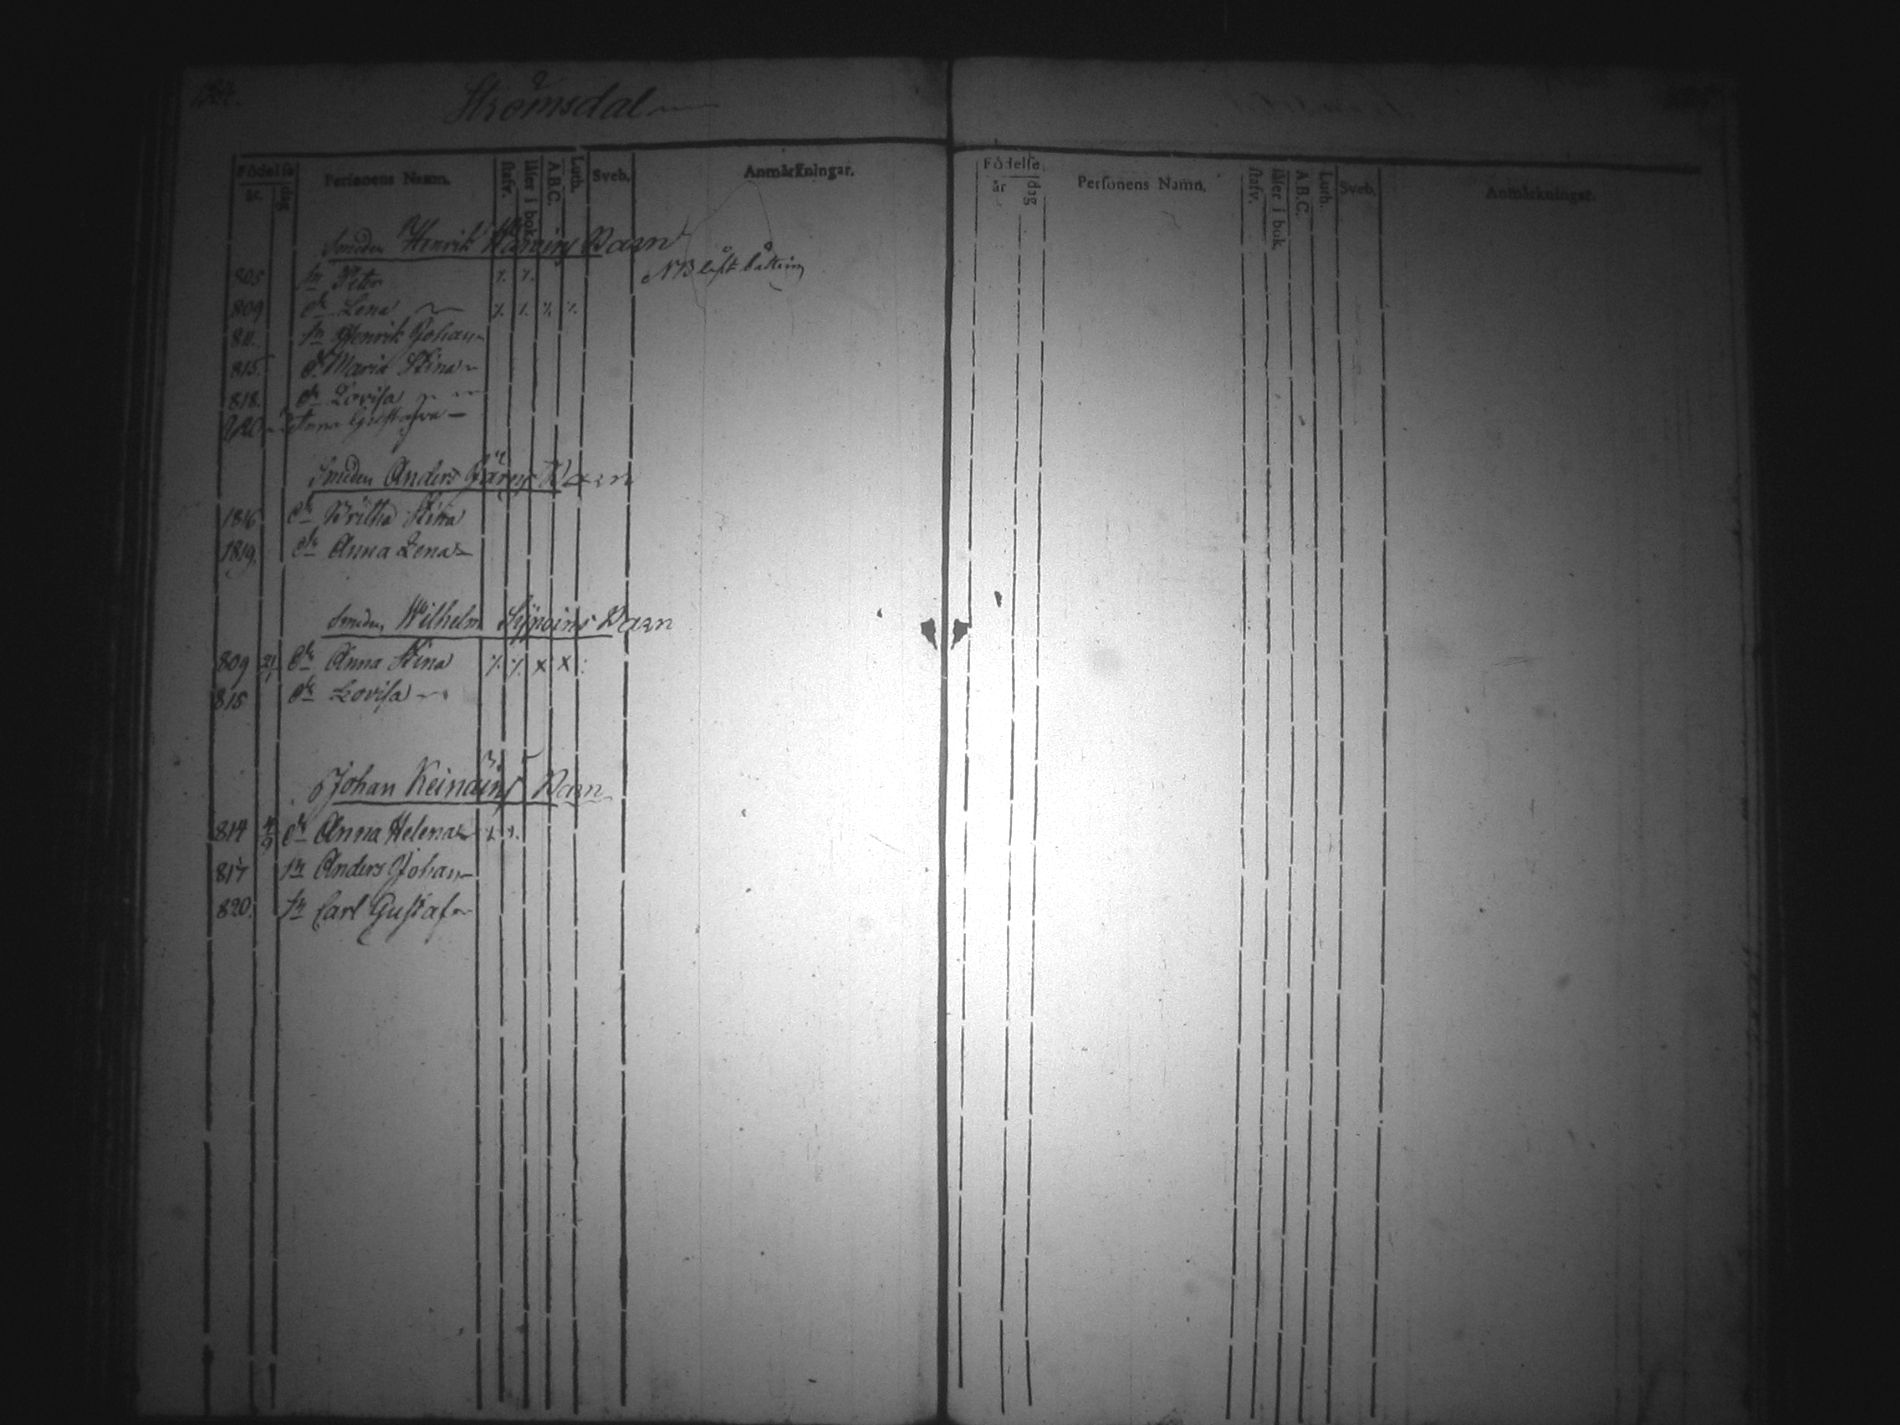 Strömsdal
Födelse
år.
dag
Personens Namn.
stafv.
läser i bok.
A.B.C.
Luth.
Sveb.
Anmärkningar.
Smeden Henrik Barn
805 sn Peter
809 dr Lena
811. sn Henrik Johan
815. dr Maria Stina
818. dr Lovisa
820 Anna Gustafva
Smeden Anders Barn
1816 dr Britha Stina
1819. dr Anna Lena
Smeden Wilhelm Barn
809 21/1 dr Anna Stina
815 dr Lovisa
Johan Keinäins Barn
814 4/9 dr Anna Helena
817 sn Anders Johan
820. sn Carl Gustaf
Födelse
år
dag
Personens Namn,
stafv.
läser i bok.
A.B.C.
Luth.
Sveb.
Anmärkningar.